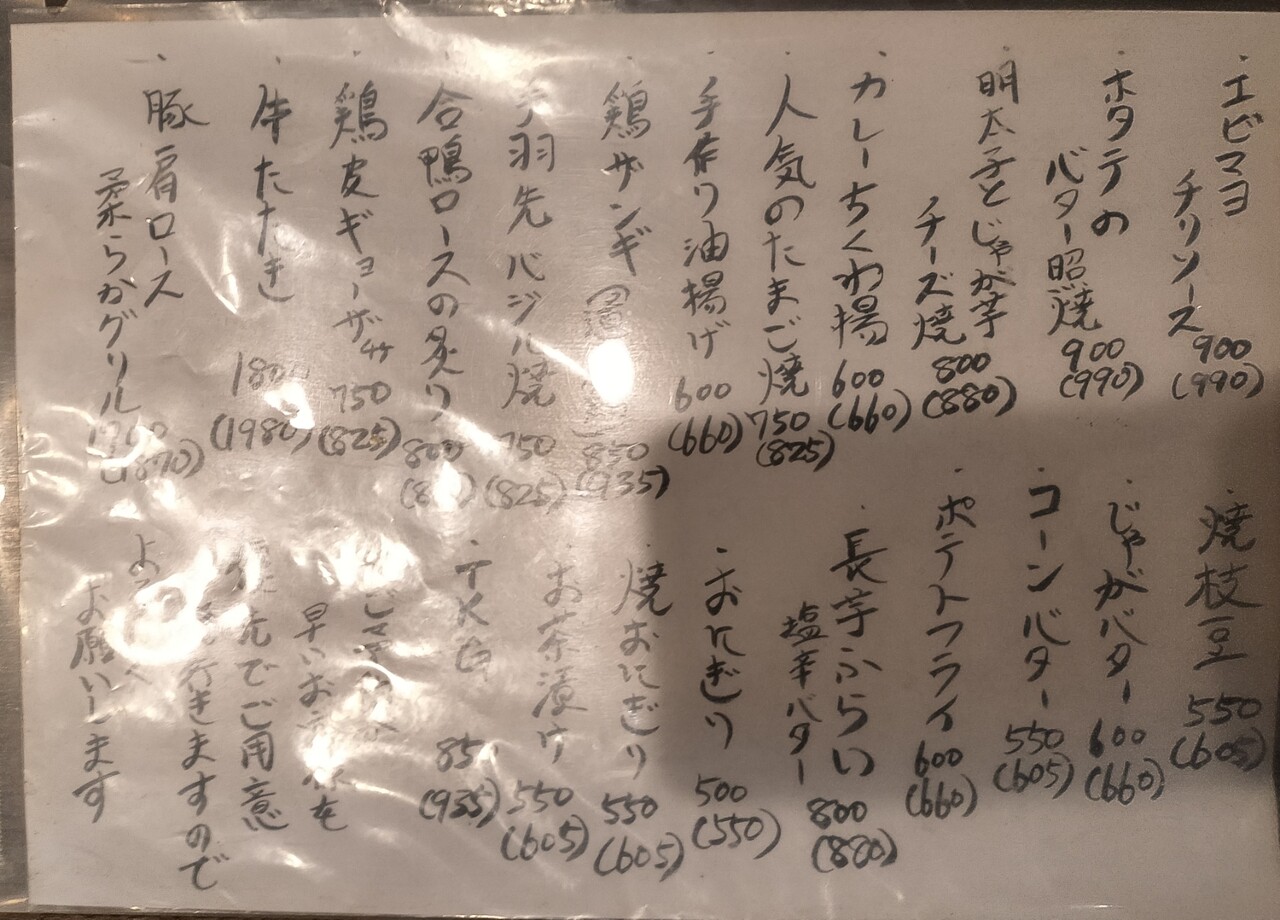 ・エビマヨ
チリソース
900
(990)
・ホタテの
バター昭焼
900
(990)
・明太子とじゃが芋
チーズ焼
800
(880)
・カレーちくわ揚
600
(660)
・人気のたまご焼
750
(825)
・手作り油揚げ
600
(660)
・鶏ザンギ
850
(935)
手羽先バジル焼
750
(825)
・合鴨ロースの炙り
800
・鶏皮ギョーザ
750
(825)
・牛たたき
1800
(1980)
・豚肩ロース
柔らかグリル
1700
(1870)
・焼枝豆
550
(605)
・じゃがバター
600
(660)
・コーンバター
550
(605)
・ポテトフライ
600
(660)
・長芋ふらい
塩辛バター
800
(880)
・おにぎり
500
(550)
・焼おにぎり
550
(605)
・お茶漬け
550
(605)
・TKG
850
(935)
早いお
でご用意
行きますので
お願いします